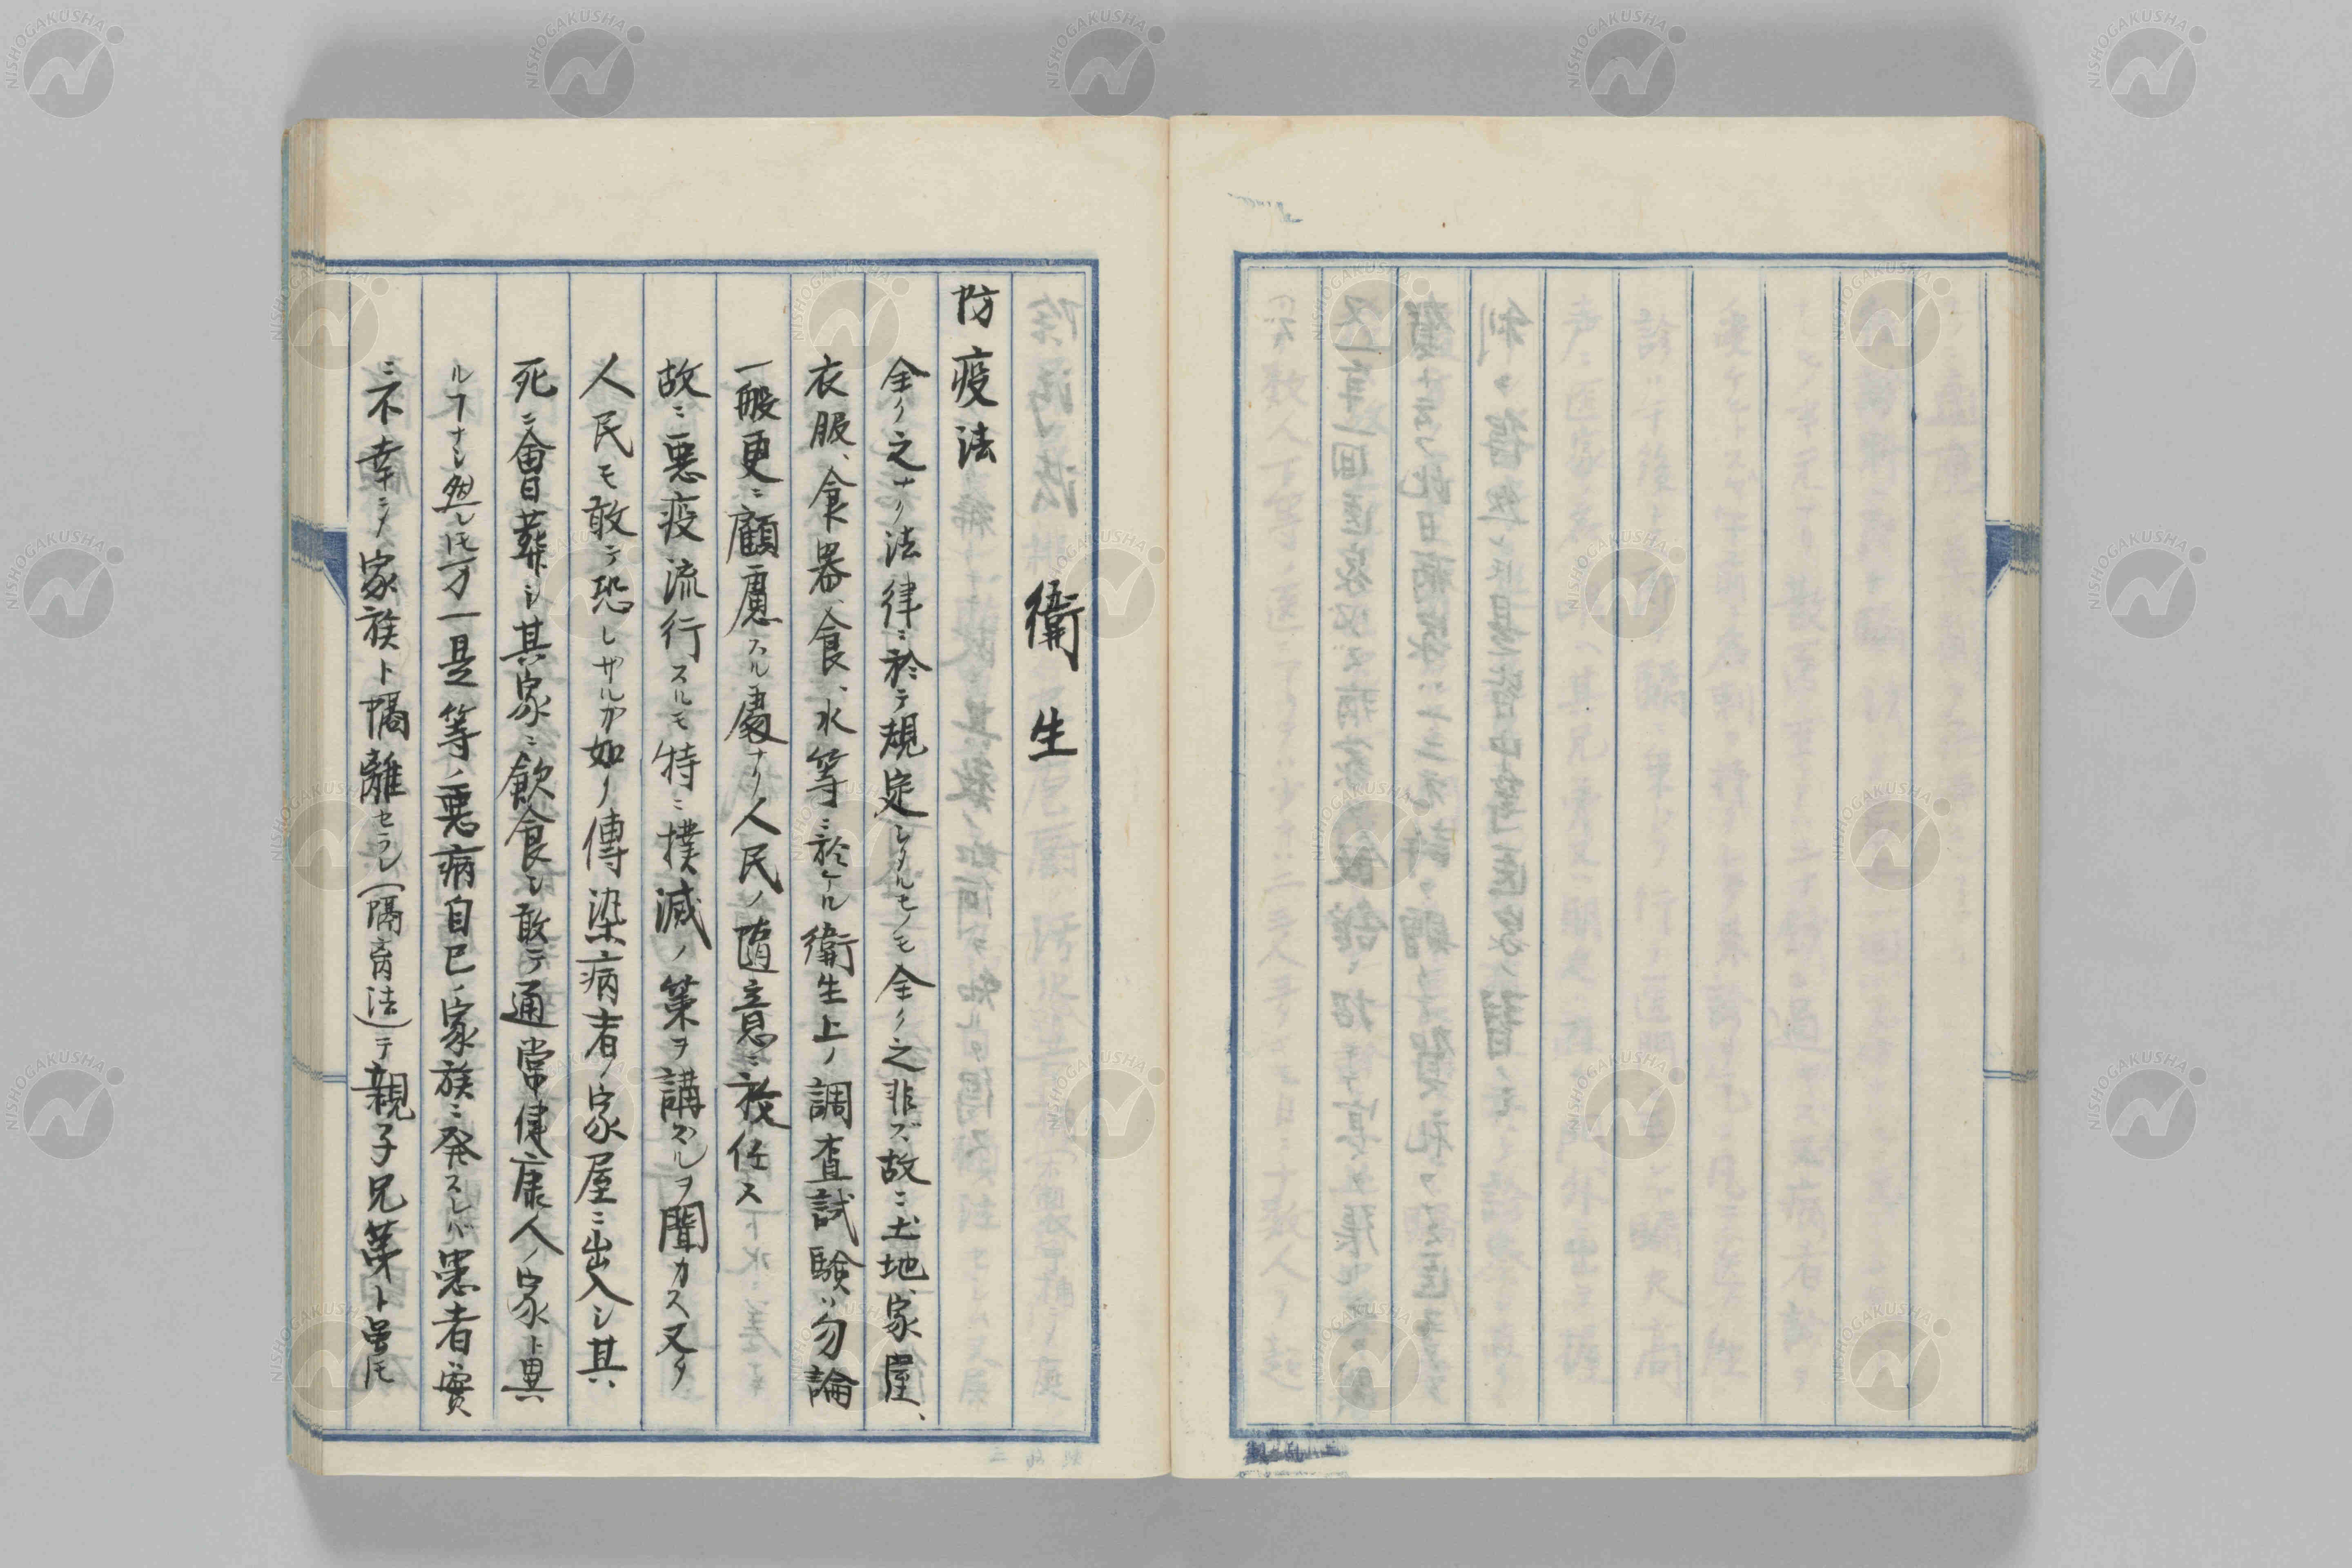 衞生
防疫法
全ク之ナリ法律ニ於テ規定シタルモノモ全ク之非ズ故ニ土地、家屋、
衣服、食器、食、水等ニ於ケル衞生上ノ調査試験ハ勿論
一般更ニ顧慮スル處ナリ人民ノ随意ニ放任ス
故ニ悪疫流行スルモ特ニ撲滅ノ策ヲ講スルヲ聞カス又タ
人民モ敢テ恐レサルカ如ク傳染病者ノ家屋ニ出入シ其
死ニ會葬シ其家ニ飲食シ敢テ通常健康人ノ家ト異
ルヿナシ然レ𪜈万一是等ノ悪病自己ノ家族ニ発スレバ患者實
ニ不幸ニ〆家族ト隔離セラレ(隔斎法)テ親子兄弟ト虽𪜈
NISHOGAKUSHA